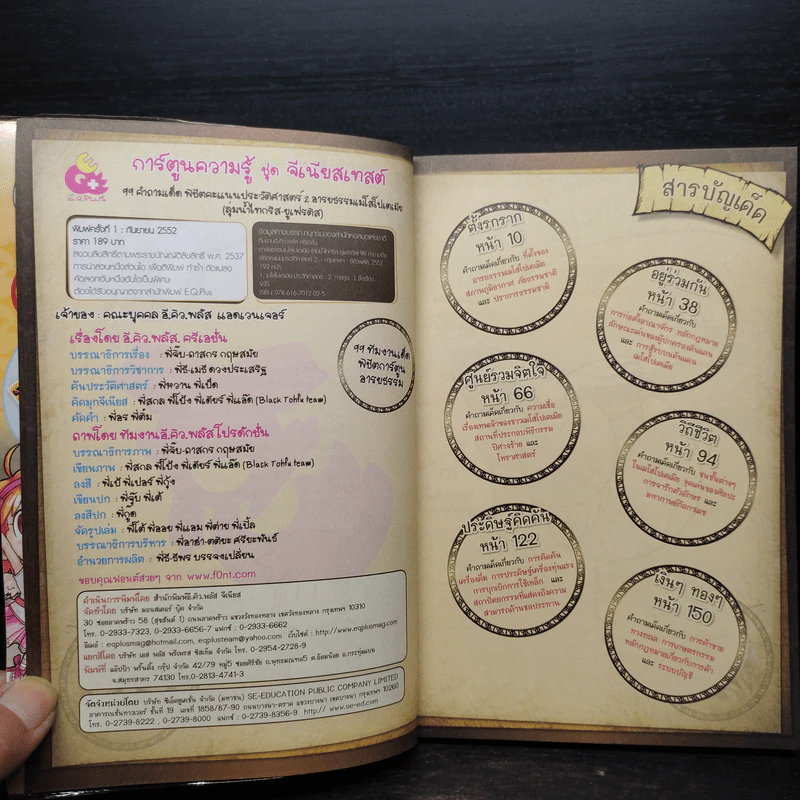 E.Q.PLUS
การ์ตูนความรู้ ชุด จีเนียสเทสต์
99 คำถามเด็ด พิชิตคะแนนประวัติศาสตร์ 2 อารยธรรมเมโสโปเตเมีย
(ลุ่มน้ำไทกริส-ยูเฟรตีส)
พิมพ์ครั้งที่ 1 : กันยายน 2552
ราคา 189 บาท
สงวนลิขสิทธิ์ตามพระราชบัญญัติลิขสิทธิ์ พ.ศ. 2537
การนำส่วนหนึ่งส่วนใด เพื่อตีพิมพ์ ทำซ้ำ ดัดแปลง
คัดลอกต้นหนึ่งต้นใดเป็นพิเศษ
ต้องได้รับอนุญาตจากสำนักพิมพ์ E.Q.Plus
ข้อมูลทางบรรณานุกรมของสำนักหอสมุดแห่งชาติ
192 หน้า.
ISBN 978-616-7012-02-5
เจ้าของ : คณะบุคคล อี.คิว.พลัส แอดเวนเจอร์
เรื่องโดย อี.คิว.พลัส. ครีเอชั่น
บรรณาธิการเรื่อง : พี่จิ๊บ-ภาสกร กฤษสมัย
บรรณาธิการวิชาการ : พี่ธี-เมธี ดวงประเสริฐ
ค้นประวัติศาสตร์ : พี่หวาน พี่เป็ด
คิดมุกจีเนียส : พี่สกล พี่โป้ง พี่เดียร์ พี่แอ๊ด (Black Tohfu team)
คัดคำ : พี่อร พี่ต้ม
99 ทีมงานเด็ด
พิชิตการ์ตูน
อารยธรรม
ภาพโดย ทีมงานอี.คิว.พลัสโปรดักชั่น
บรรณาธิการภาพ : พี่จิ๊บ-ภาสกร กฤษสมัย
เขียนภาพ : พี่สกล พี่โป้ง พี่เดียร์ พี่แอ๊ด (Black Tohfu team)
ลงสี : พี่เป้ พี่เปอร์ พี่กุ้ง
เขียนปก : พี่จุ๊บ พี่เต้
ลงสีปก : พี่กู๊ด
จัดรูปเล่ม : พี่โต้ พี่ออย พี่แอม พี่ต่าย พี่เปิ้ล
บรรณาธิการบริหาร : พี่อาฮ่า-ตติยะ ศรียะพันธ์
อำนวยการผลิต : พี่ธี-ธีพร บรรจงเปลี่ยน
ขอบคุณฟอนต์สวยๆ จาก www.f0nt.com
ดำเนินการพิมพ์โดย สำนักพิมพ์อี.คิว.พลัส จีเนียส
จัดทำโดย บริษัท มอนสเตอร์ บุ๊ค จำกัด
30 ซอยลาดพร้าว 58 (สุขสันต์ 1) ถนนลาดพร้าว แขวงวังทองหลาง เขตวังทองหลาง กรุงเทพฯ 10310
โทร. 0-2933-7323, 0-2933-6656-7 แฟกซ์ : 0-2933-6662
อีเมล : eqplusmag@hotmail.com, eqplusteam@yahoo.com เว็บไซต์ : http://www.eqplusmag.com
แยกสีโดย บริษัท เอส พลัส พริเพรส ซิสเท็ม จำกัด โทร. 0-2954-2728-9
พิมพ์ที่ แอ๊ปป้า พริ้นติ้ง กรุ๊ป จำกัด 42/79 หมู่5 ซอยศิริชัย ถ.พุทธมณฑล5 ต.อ้อมน้อย อ.กระทุ่มแบน
จ.สมุทรสาคร 74130 โทร.0-2813-4741-3
จัดจำหน่ายโดย บริษัท ซีเอ็ดยูเคชั่น จำกัด (มหาชน) SE-EDUCATION PUBLIC COMPANY LIMITED
อาคารเนชั่นทาวเวอร์ ชั้นที่ 19 เลขที่ 1858/87-90 ถนนบางนา-ตราด แขวงบางนา เขตบางนา กรุงเทพฯ 10260
โทร. 0-2739-8222, 0-2739-8000 แฟกซ์ : 0-2739-8356-9 http://www.se-ed.com
สารบัญเด็ด
ตั้งรกราก
หน้า 10
คำถามเด็ดเกี่ยวกับ ที่ตั้งของ
อารยธรรมเมโสโปเตเมีย
สภาพภูมิอากาศ ภัยธรรมชาติ
และ ปราการธรรมชาติ
อยู่ร่วมกัน
หน้า 38
คำถามเด็ดเกี่ยวกับ
การก่อตั้งอาณาจักร หลักกฎหมาย
ลักษณะเด่นของผู้ปกครองดินแดน
และ การสู้รบบนดินแดน
เมโสโปเตเมีย
ศูนย์รวมจิตใจ
หน้า 66
คำถามเด็ดเกี่ยวกับ ความเชื่อ
เรื่องเทพเจ้าของชาวเมโสโปเตเมีย
สถานที่ประกอบพิธีกรรม
ปีศาจร้าย และ
โหราศาสตร์
วิถีชีวิต
หน้า 94
คำถามเด็ดเกี่ยวกับ ชนชั้นต่างๆ
ในเมโสโปเตเมีย จุดเด่นของศิลปะ
การจารึกตัวอักษร และ
มหากาพย์กิลกาเมช
ประดิษฐ์คิดค้น
หน้า 122
คำถามเด็ดเกี่ยวกับ การคิดค้น
เครื่องดื่ม การประดิษฐ์เครื่องทุ่นแรง
การบุกเบิกการใช้เหล็ก และ
สถาปัตยกรรมที่แสดงถึงความ
สามารถด้านชลประทาน
เงินๆ ทองๆ
หน้า 150
คำถามเด็ดเกี่ยวกับ การค้าขาย
ทางทะเล การเกษตรกรรม
หลักกฎหมายเกี่ยวกับการค้า
และ ระบบบัญชี